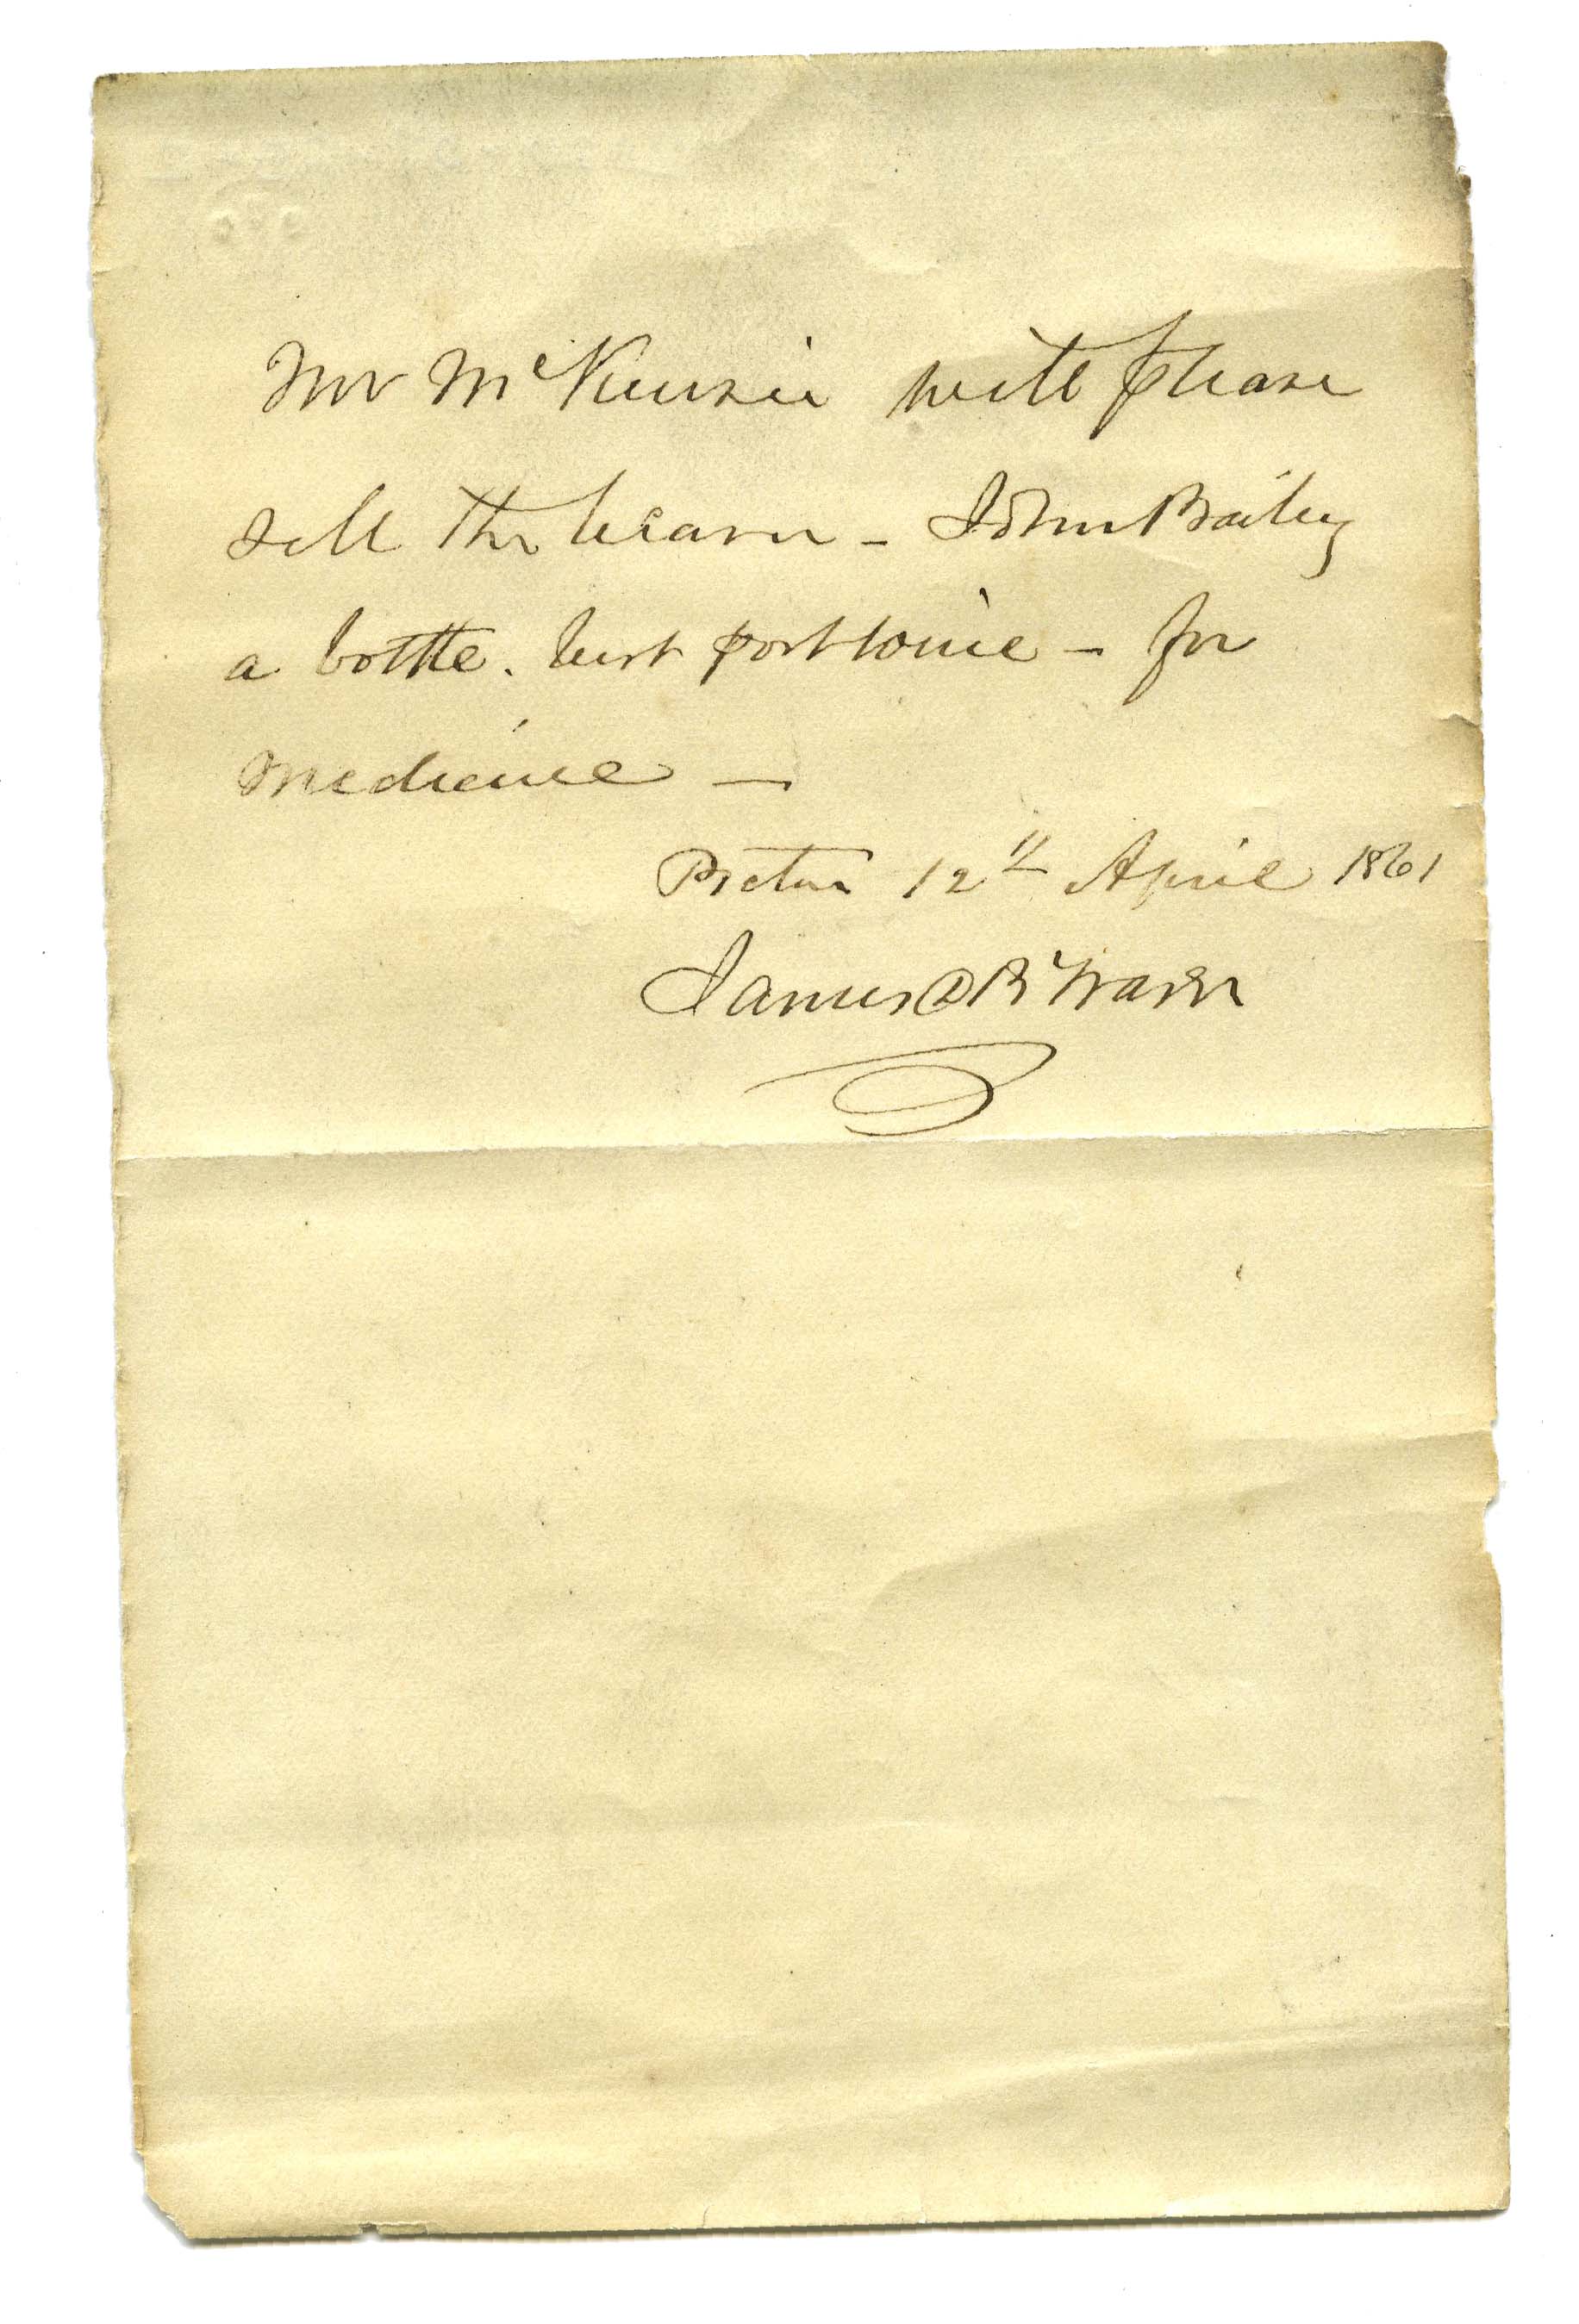 Mr McKenzie will please
sell the bearer - John Bailey
a bottle. best port wine - for
medicine -
Pictou 12th April 1861
James D B Fraser